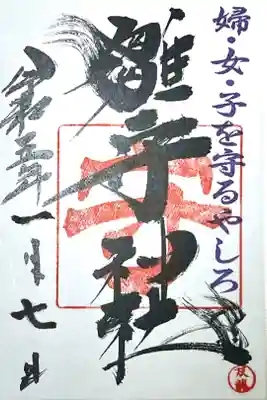 婦・女・子を守るやしろ
雛子神社
令和五年一月七日